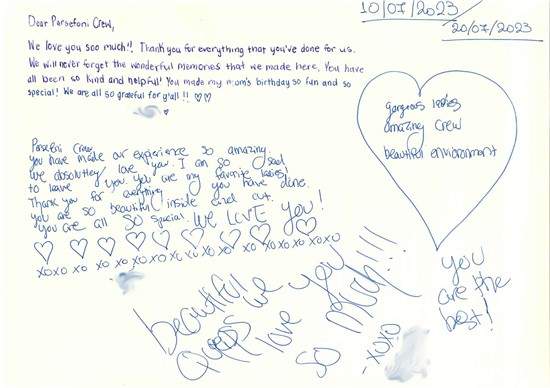 10/07/2023
20/07/2023
Dear Persefoni Crew,
We love you soo much!! Thank you for everything that you've done for us.
We will never forget the wonderful memories that we made here. You have
all been so kind and helpful! You made my mom's birthday so fun and so
special! We are all so grateful for y'all!! ♡♡
Persefoni Crew,
you have made our experience so amazing.
We absolutley love you. I am so sad
to leave you. You are my favorite ladies!
Thank you for everything you have done.
you are so beautiful inside and out.
you are all so special. WE LOVE YOU!
♡ ♡ ♡ ♡ ♡ ♡ ♡ ♡ ♡
xoxo xo xo xo xo xo xo xo xo xoxo
gorgeous ladies
amazing crew
beautiful environment
you
are the
best!
beautiful
queens we
love you
so much!!!
-xoxo